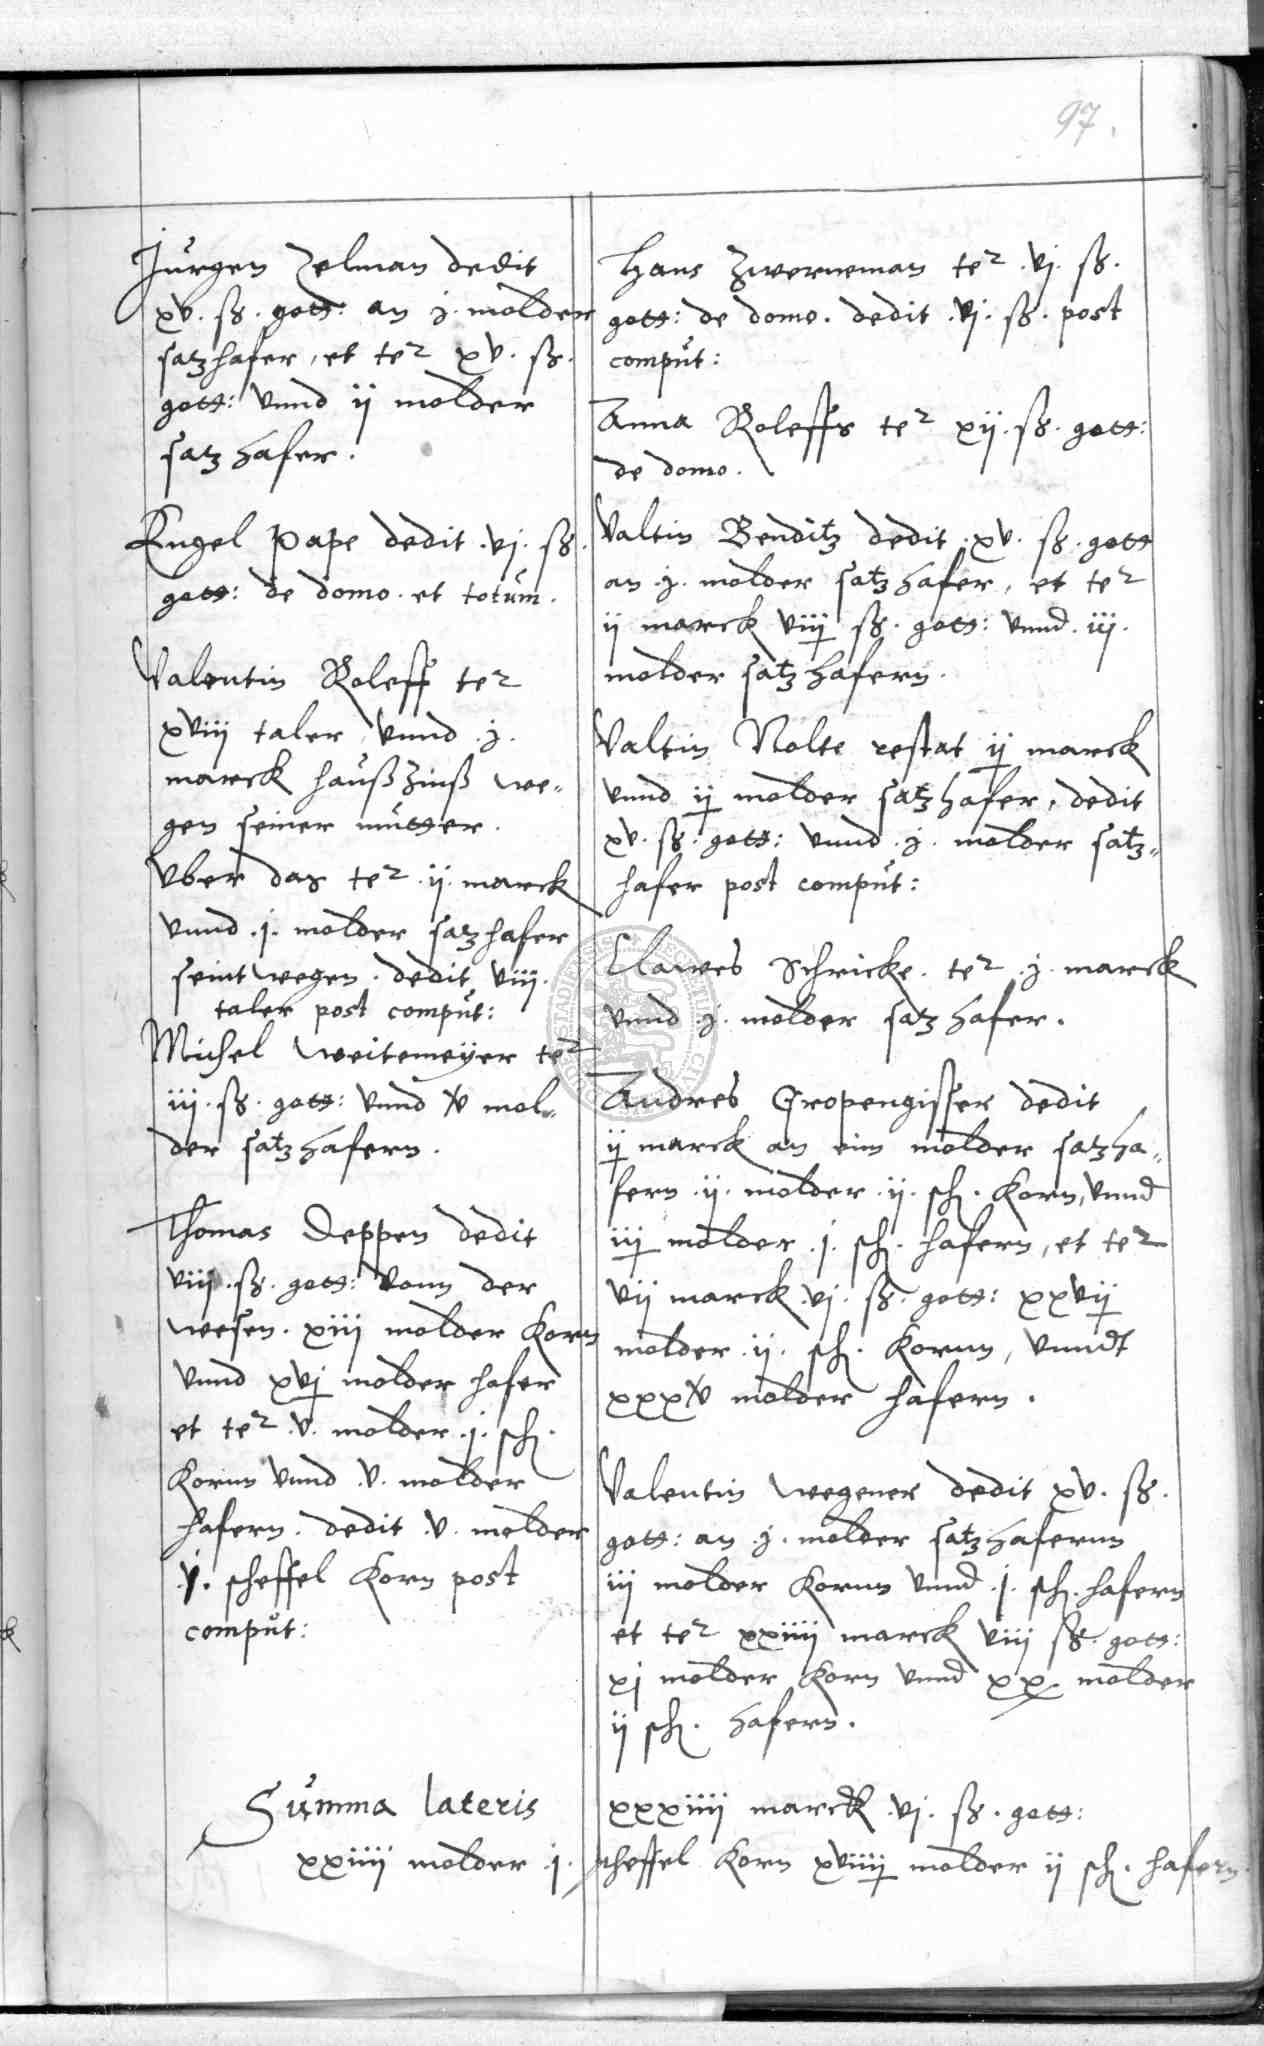 97.
Jurgen Zelman dedit
xv. ß. gott: an j. molder
satzhafer, et te2 xv. ß.
gott: vnnd ij molder
satzhafer.
Engel Pape dedit .vj. ß.
gott: de domo. et totum.
Valentin Roleff te2
xviij taler vnnd .j.
marck haußzinß we„
gen seiner mutter.
Vber das te2 .ij. marck
vnnd .j. molder satzhafer
seintwegen. dedit viij.
taler post comput:
Michel Weitemeyer te2
iij. ß. gott: vnnd v mol„
der satzhafern.
Thomas Deppen dedit
viij. ß. gott: vonn der
wesen. xiij molder Korn
vnnd xvj molder hafer
et te2 .v. molder .j. sch.
Kornn vnnd .v. molder
hafern. dedit .v. molder
.j. scheffel Korn post
comput:
Hans Zwerneman te2 .vj. ß.
gott: de domo. dedit .vj. ß. post
comput:
Anna Roleffs te2 xij. ß. gott:
de domo.
Valtin Benditz dedit .xv. ß. gott
an .j. molder satzhafer, et te2
ij marck viij ß. gott: vnnd .iij.
molder satzhafern.
Valtin Nolte restat ij marck
vnnd ij molder satzhafer, dedit
xv. ß. gott: vnnd .j. molder satz„
hafer post comput:
Clawes Schricke. te2 .j. marck
vnnd .j. molder satzhafer.
Andres Gropengisser dedit
ij marck an eim molder satzha„
fern .ij. molder .ij. sch. Korn, vnnd
iij molder .j. sch. hafern, et te2
vij marck .vj. ß. gott: xxvij
molder .ij. sch. Kornn, vnndt
xxxv molder hafern.
Valentin Wegener dedit xv. ß.
gott: an .j. molder satzhafernn
iij molder Kornn vnnd .j. sch. hafern
et te2 xxiiij marck viij ß. gott:
xj molder Korn vnnd xx molder
ij sch. hafern.
Summa lateris xxxiiij marck .vj. ß. gott:
xxiiij molder .j. scheffel Korn xviiij molder ij sch. hafern.